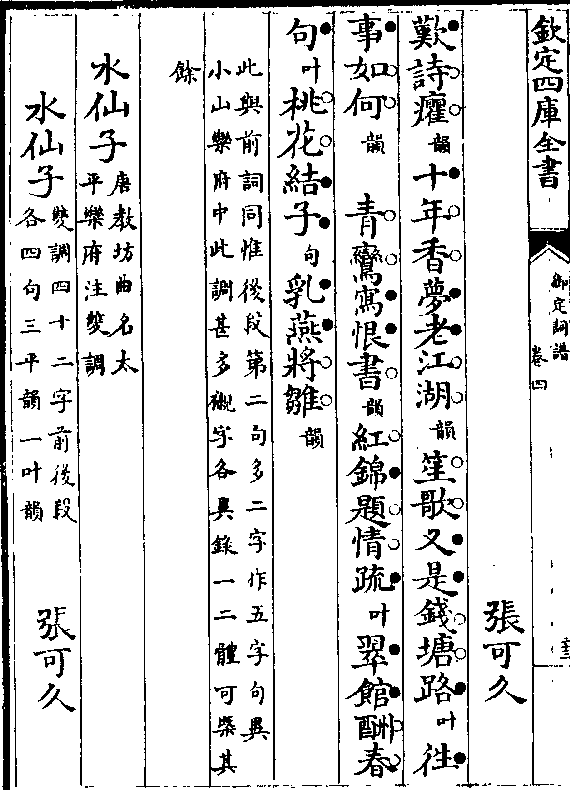 欽定四庫全書
御定詞譜
卷四
張可久
歎詩癯韻十年香夢老江湖韻笙歌又是錢塘路叶往
事如何韻 青鸞寫恨書韻紅錦題情疏叶翠館酬春
句叶桃花結子句乳燕將雛韻
此與前詞同惟後段第二句多二字作五字句異
小山樂府中此調甚多襯字各異錄一二體可槩其
餘
水仙子
唐教坊曲名太
平樂府注雙調
水仙子
雙調四十二字前後段
各四句三平韻一叶韻
張可久